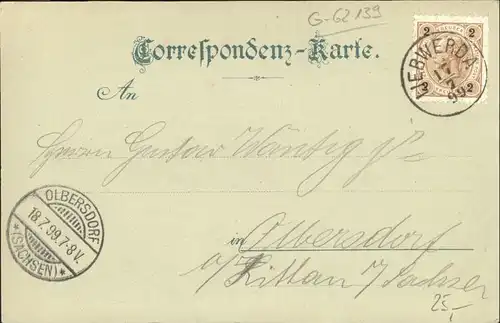 G-62139
Correspondenz-Karte.
2 2
2 2
LIEBWERDA
17
7
99
An
Herrn Gustav Wäntig
OLBERSDORF
18.7.99.7-8V.
*(SACHSEN)*
in Olbersdorf
b/Zittau i/Sachsen
25,-